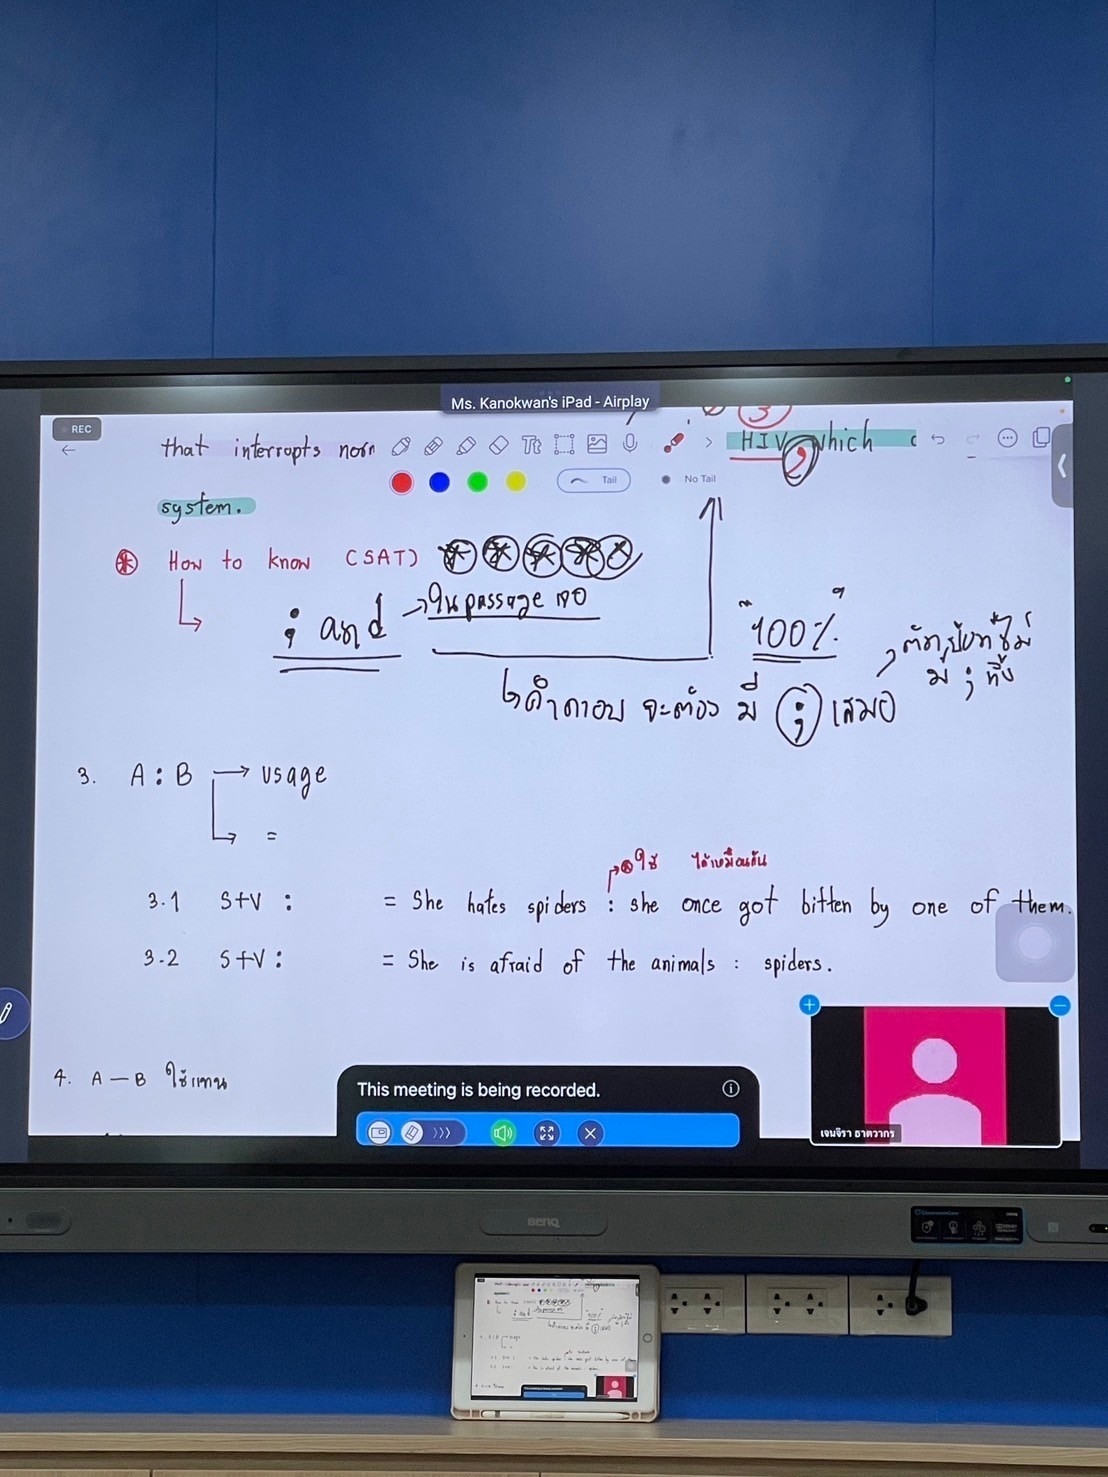 Ms. Kanokwan's iPad - Airplay
REC
that interrupts HIV, which
Tail
No Tail
system.
How to know (SAT)
; and → ใน passage เจอ "100%"
คำตอบ จะต้อง มี ; เสมอ
มี ; ทิ้ง
3. A : B → usage
=
ใช้ ได้เหมือนกัน
3.1 S+V : = She hates spiders : she once got bitten by one of them.
3.2 S+V : = She is afraid of the animals : spiders.
4. A — B ใช้แทน
This meeting is being recorded.
เจนจิรา ธาตวากร
BenQ